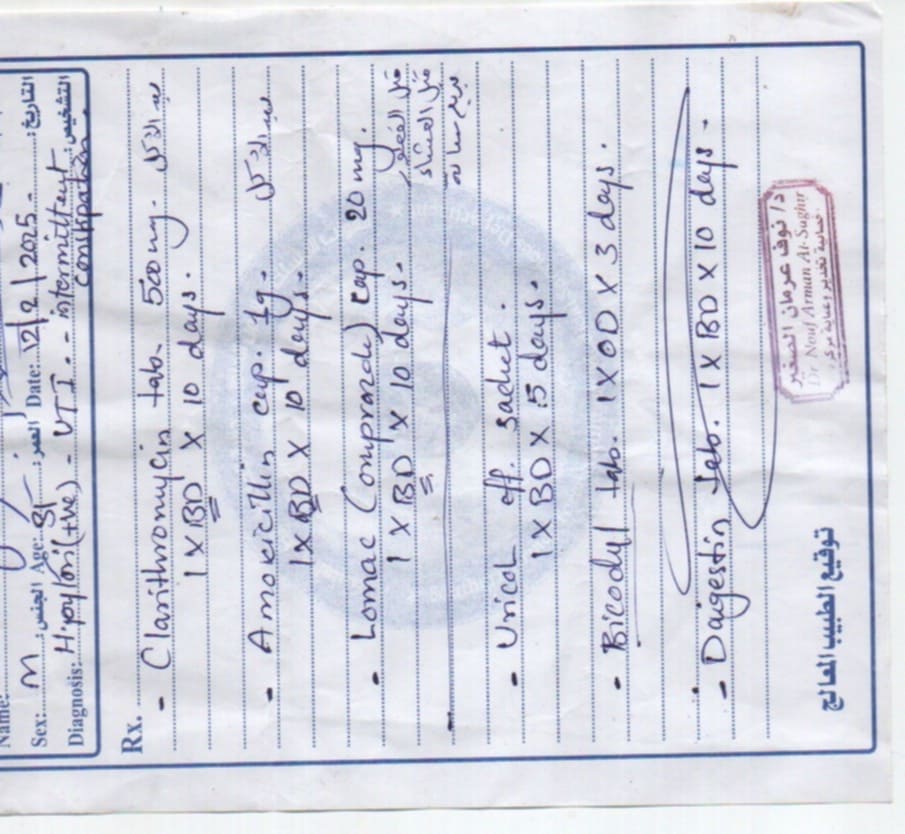 Name:
Sex: M الجنس: Age: العمر: Date: 12/2/2025 التاريخ:
Diagnosis: H.pylori (+ve) - UTI - intermittent التشخيص:
constipation
Rx.
- Clarithromycin tab. 500mg. بعد الأكل
1 X BD X 10 days.
- Amoxicillin cap. 1g. بعد الأكل
1 X BD X 10 days.
- Lomac (omprazole) cap. 20 mg.
1 X BD X 10 days. قبل الفطور
قبل العشاء
- Uricol eff. sachet.
1 X BD X 5 days.
- Bicodyl tab. 1 X OD X 3 days.
- Daigestin tab. 1 X BD X 10 days.
د/ نوف عرمان الصغير
Dr Nouf Arman Al-Saghir
توقيع الطبيب المعالج